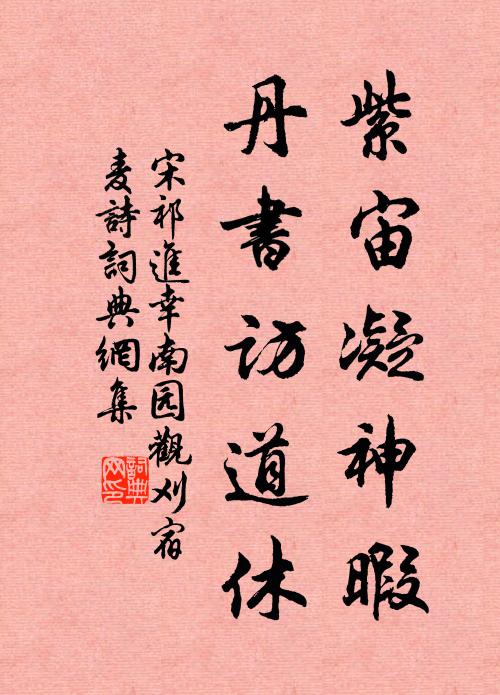 紫宙凝神暇
丹書訪道休
宋祁進幸南园觀刈宿
麦詩詞典網集
詞典网印